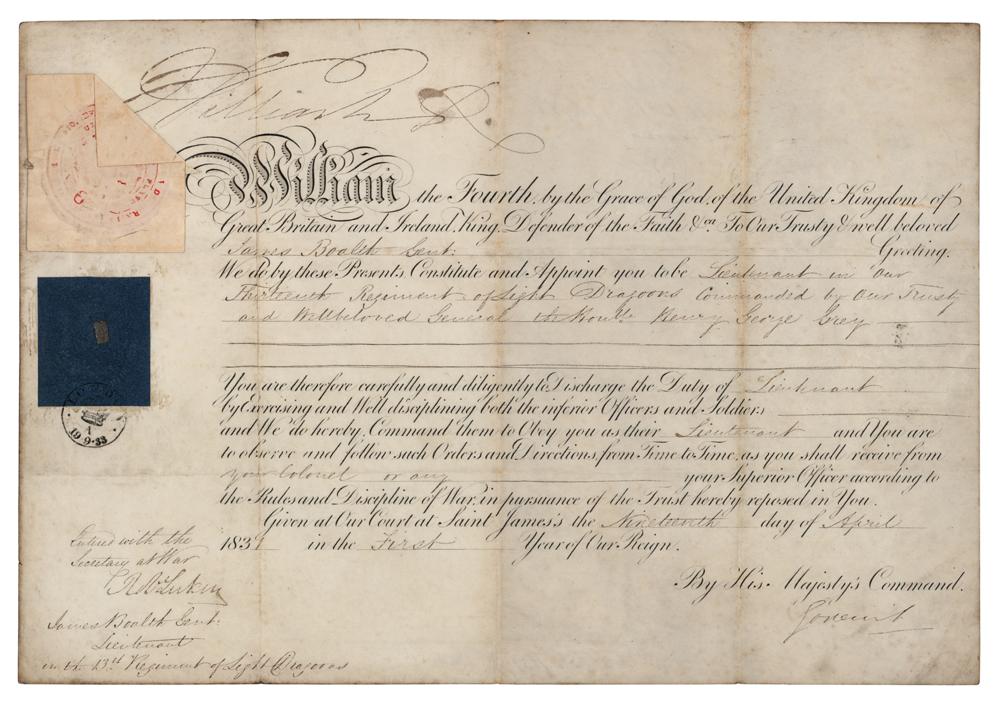 William R
William the Fourth, by the Grace of God, of the United Kingdom of
Great Britain and Ireland, King, Defender of the Faith &ca. To Our Trusty & well beloved
James Boalth Gent. Greeting.
We do by these Presents, Constitute and Appoint you to be Lieutenant in our
Thirteenth Regiment of Light Dragoons Commanded by Our Trusty
and Wellbeloved General the Honble. Henry George Grey
You are therefore carefully and diligently to Discharge the Duty of Lieutenant
by Exercising and Well disciplining both the inferior Officers and Soldiers
and We do hereby Command them to Obey you as their Lieutenant and You are
to observe and follow such Orders and Directions, from Time to Time, as you shall receive from
your Colonel or any your Superior Officer according to
the Rules and Discipline of War, in pursuance of the Trust hereby reposed in You.
Given at Our Court at Saint James's the Nineteenth day of April
1831 in the First Year of Our Reign.
By His Majesty's Command.
Entered with the
Secretary at War
James Boalth Gent.
Lieutenant
in the 13th Regiment of Light Dragoons
A
19·9·33